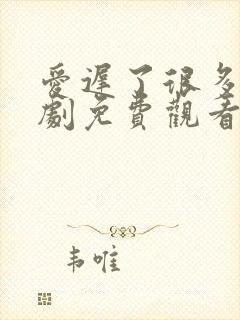 愛遲了很多
劇免費觀看
韦唯